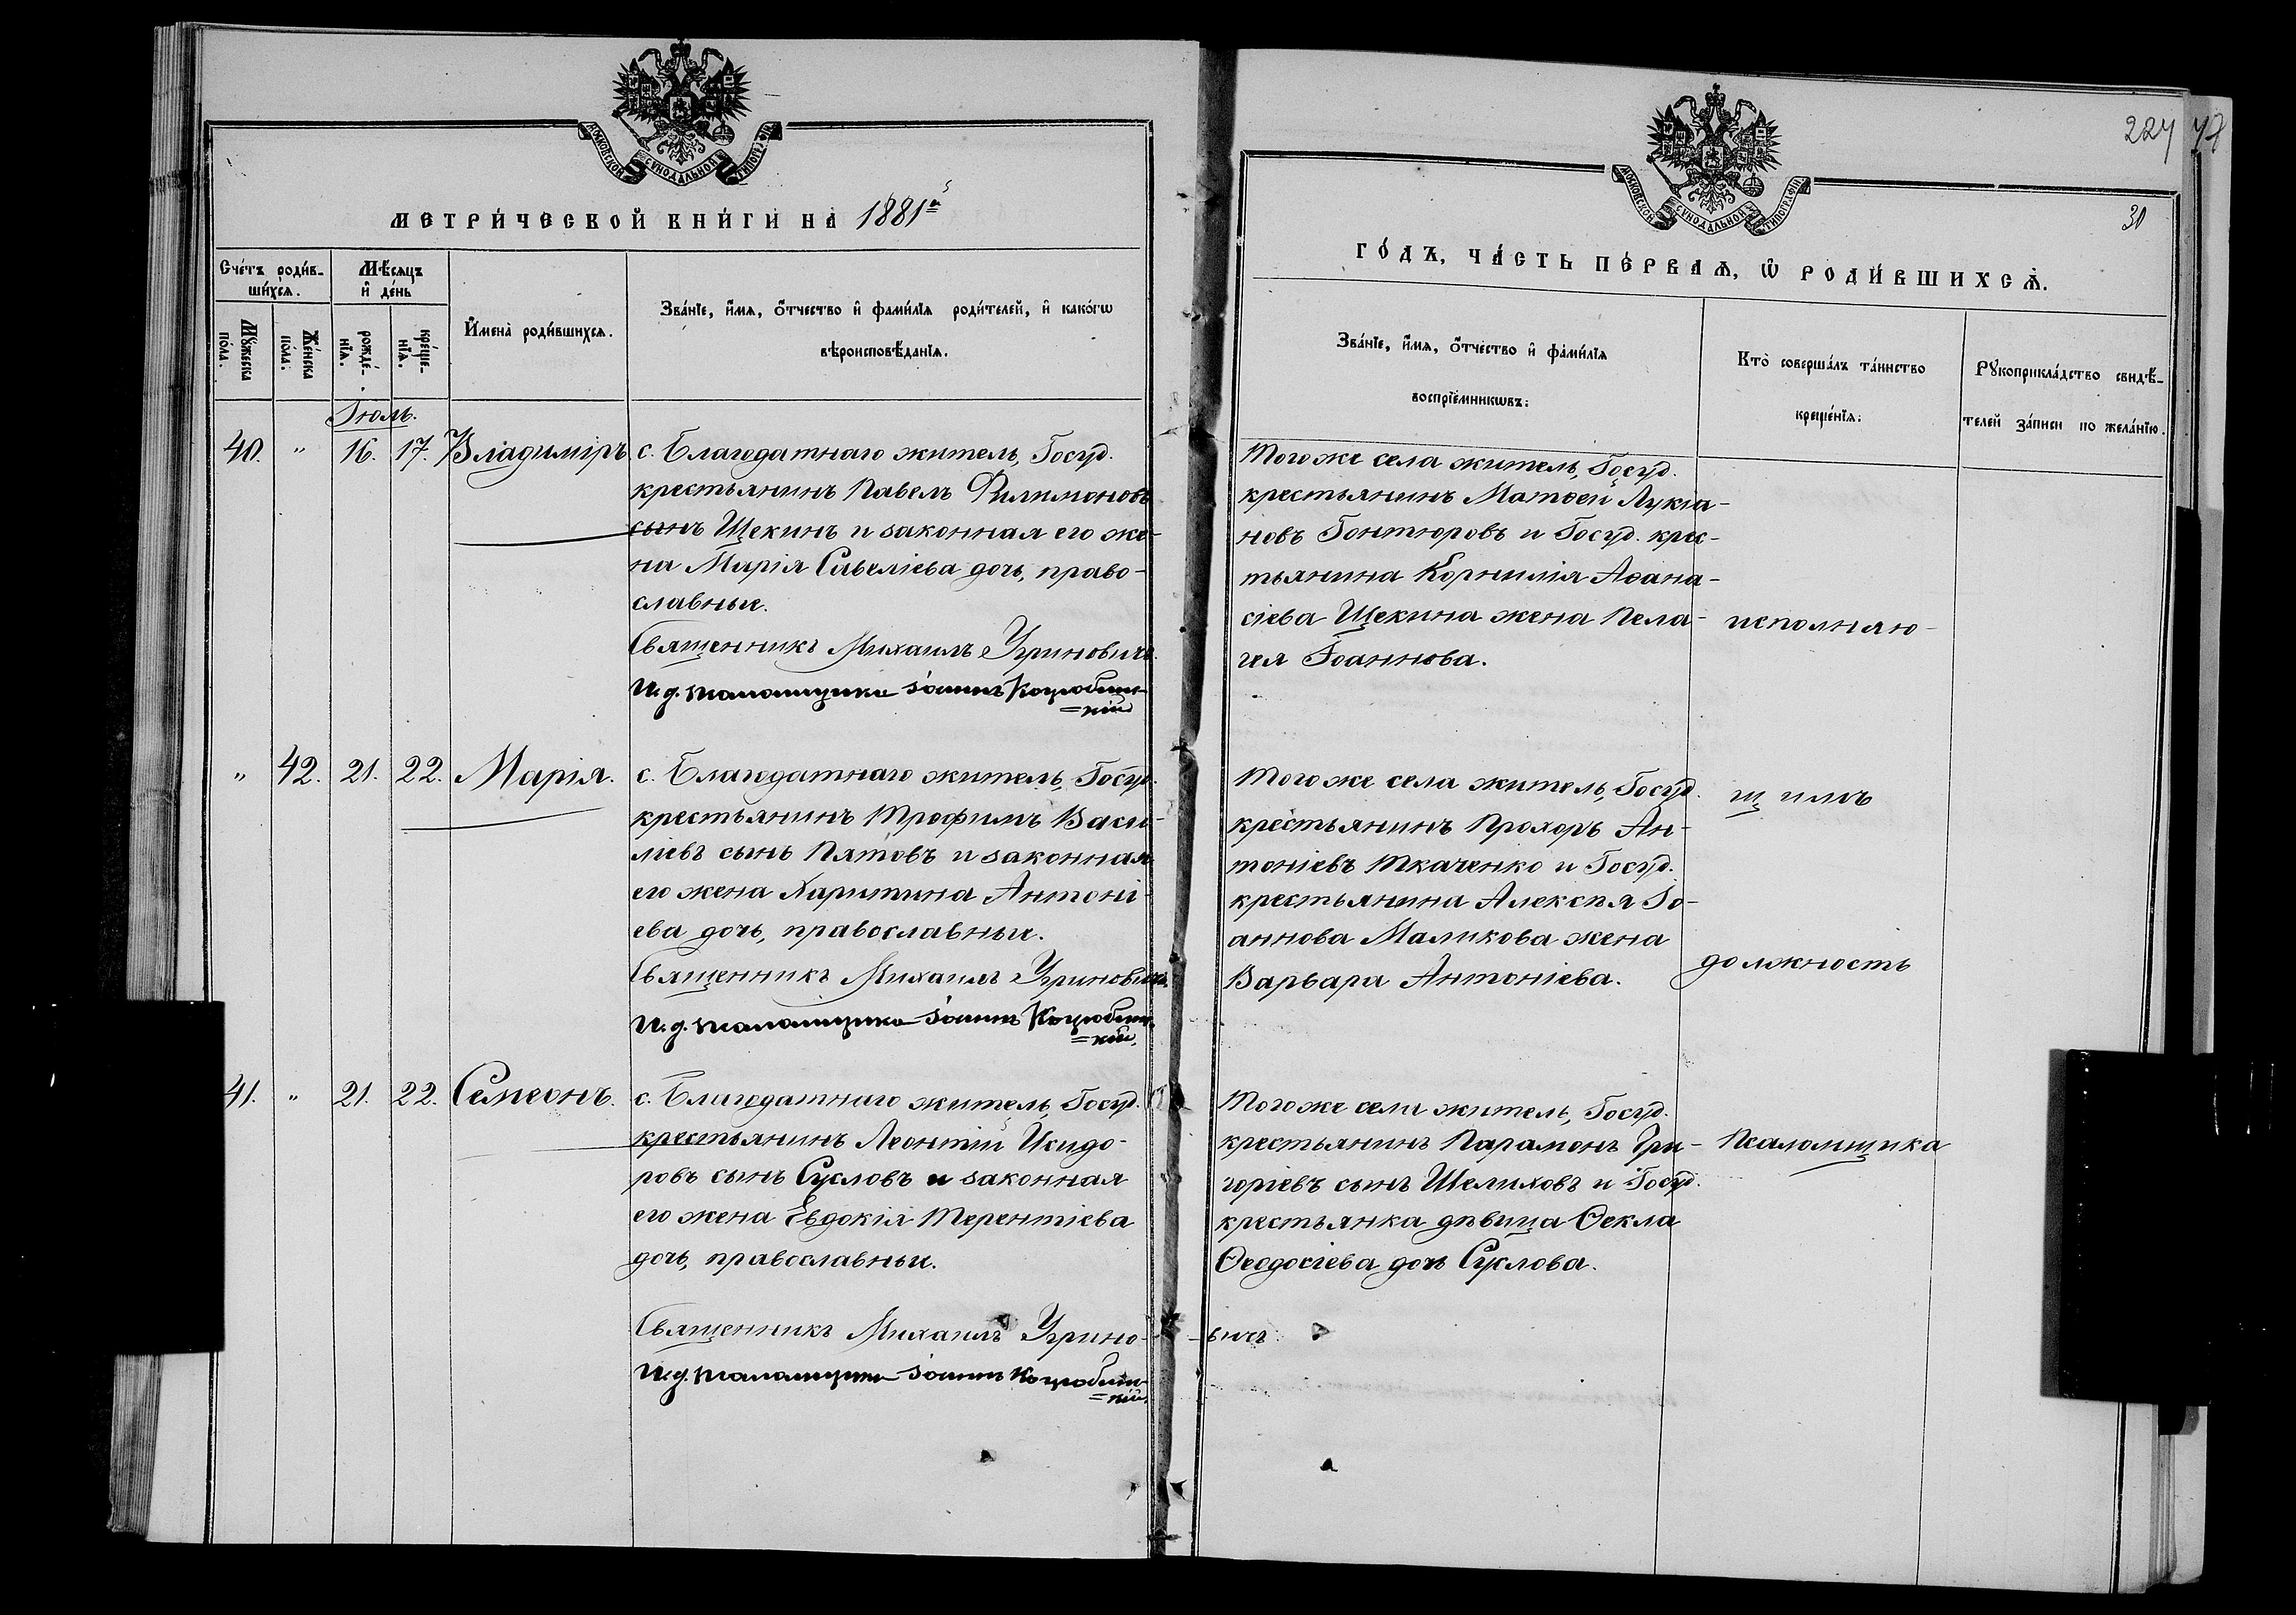 МОСКОВСКОЙ СѴНОДАЛЬНОЙ ТИПОГРАФІИ
МЕТРИ́ЧЕСКОЙ КНИ́ГИ НА 1881й
Сче́тъ роди́в-
ши́хсѧ.
Мѣ́сяцъ
и҆ де́нь
Мꙋ́жеска
по́ла.
Же́нска
по́ла.
рожде́-
нїѧ.
креще́-
нїѧ.
И҆мена̀ роди́вшихсѧ.
Зва́нїе, и҆́мѧ, ѻ҆́тчество и҆ фами́лїѧ роди́телей, и҆ како́гѡ
вѣроисповѣ́данїѧ.
Іюль.
40. " 16. 17. Владиміръ
с. Благодатнаго житель, Госуд.
крестьянинъ Павелъ Филимоновъ
сынъ Щекинъ и законная его же-
на Марія Савеліева дочь, право-
славные.
Священникъ Михаилъ Угриновичъ.
И. д. псаломщика Іоаннъ Коцюбин-
=кій
" 42. 21. 22. Марія.
с. Благодатнаго житель, Госуд.
крестьянинъ Трофимъ Васи-
ліевъ сынъ Пятовъ и законная
его жена Харитина Антоні-
ева дочь, православные.
Священникъ Михаилъ Угриновичъ.
И. д. псаломщика Іоаннъ Коцюбин-
=кій.
41. " 21. 22. Симеонъ.
с. Благодатнаго житель, Госуд.
крестьянинъ Леонтій Исидо-
ровъ сынъ Сусловъ и законная
его жена Евдокія Терентіева
дочь, православные.
Священникъ Михаилъ Угрино- -вичъ.
И. д. псаломщика Іоаннъ Коцюбин-
=кій.
224 47
30
МОСКОВСКОЙ СѴНОДАЛЬНОЙ ТИПОГРАФІИ
ГО́ДЪ, ЧА́СТЬ ПЕ́РВАѦ, Ѡ҆ РОДИ́ВШИХСѦ.
Зва́нїе, и҆́мѧ, ѻ҆́тчество и҆ фами́лїѧ
воспрїе́мникѡвъ.
Кто̀ соверша́лъ та́инство
креще́нїѧ.
Рꙋкоприкла́дство свидѣ́-
телей за́писи по жела́нїю.
Того же села житель, Госуд.
крестьянинъ Матѳей Лукіа-
новъ Гонтюровъ и Госуд. крес-
тьянина Корнилія Аѳана-
сіева Щекина жена Пела-
гія Іоаннова.
исполняю-
Того же села житель, Госуд.
крестьянинъ Прохоръ Ан-
тоніевъ Ткаченко и Госуд.
крестьянина Алексѣя Іо-
аннова Маликова жена
Варвара Антоніева.
щимъ
должность
Того же села житель, Госуд.
крестьянинъ Парамонъ Гри-
горіевъ сынъ Шелиховъ и Госуд.
крестьянка дѣвица Ѳекла
Ѳеодосіева дочь Суслова.
Псаломщика